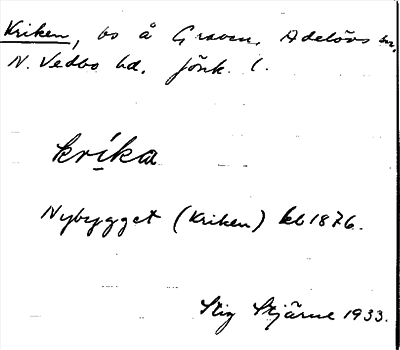 Kriken, bs å Graven, Adelövs sn,
N. Vedbo hd. Jönk. l.
kríka
Nybygget (Kriken) kb 1876.
Stig Stjärne 1933.